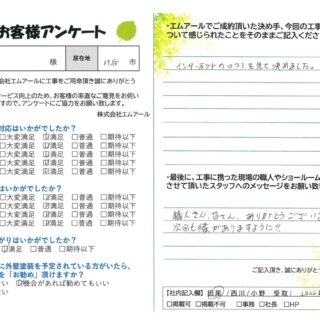 お客様アンケート
様
居在地
市
会社エムアールに工事をご用命頂き誠にありがとう
ービス向上のため、お客様の率直なご意見をお伺い
すので、アンケートにご協力をお願い致します。
株式会社エムアール
対応はいかがでしたか?
□大変満足 ☑満足 □普通 □期待以下
□大変満足 ☑満足 □普通 □期待以下
□大変満足 ☑満足 □普通 □期待以下
はいかがでしたか?
□大変満足 ☑満足 □普通 □期待以下
□大変満足 ☑満足 □普通 □期待以下
□大変満足 ☑満足 □普通 □期待以下
がりはいかがでしたか?
□大変満足 ☑満足 □普通 □期待以下
に外壁塗装を予定されている方がいたら、
を「お勧め」頂けますか?
たい ☑機会があれば勧めてもいい
ない
・エムアールでご成約頂いた決め手、今回の工事
ついて感じられたことをそのままご記入ください
インターネットの口コミを見て決めました。
・最後に、工事に携った現場の職人やショールーム
させて頂いたスタッフへのメッセージをお願い致
職人さん、 ありがとうござい
次回も縁がありますように!!
ご記入頂き、誠にありがとう
【社内記入欄】田尾/西川/小野 受取:2022
□掲載可 □掲載不可 □事務 □社長 □HP